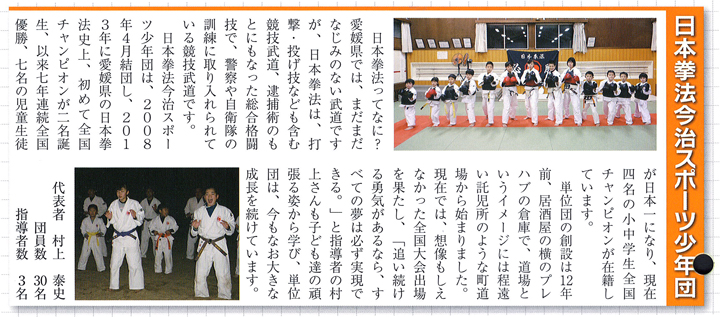 日本拳法今治スポーツ少年団
日本拳法ってなに?
愛媛県では、まだまだ
なじみのない武道です
が、日本拳法は、打
撃・投げ技なども含む
競技武道、逮捕術のも
とにもなった総合格闘
技で、警察や自衛隊の
訓練に取り入れられて
いる競技武道です。
日本拳法今治スポー
ツ少年団は、2008
年4月結団し、201
3年に愛媛県の日本拳
法史上、初めて全国
チャンピオンが二名誕
生、以来七年連続全国
優勝、七名の児童生徒
が日本一になり、現在
四名の小中学生全国
チャンピオンが在籍し
ています。
単位団の創設は12年
前、居酒屋の横のプレ
ハブの倉庫で、道場と
いうイメージには程遠
い託児所のような町道
場から始まりました。
現在では、想像もしえ
なかった全国大会出場
を果たし、「追い続け
る勇気があるなら、す
べての夢は必ず実現で
きる。」と指導者の村
上さんも子ども達の頑
張る姿から学び、単位
団は、今もなお大きな
成長を続けています。
代表者 村上 泰史
団員数 30名
指導者数 3名
日本拳法